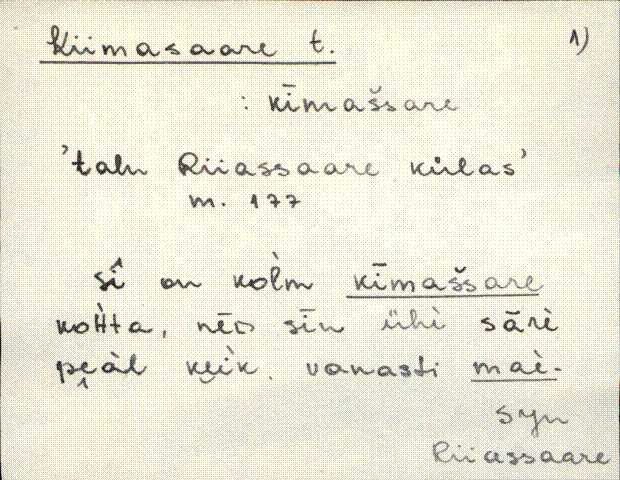 Kiimasaare t. 1)
: kīmašsare
'talu Riiassaare külas'
m. 177
sî on kolm kīmašsare
kohta, nēD sīn ühè sārè
peàl keìk. vanasti maè-
Syn
Riiassaare